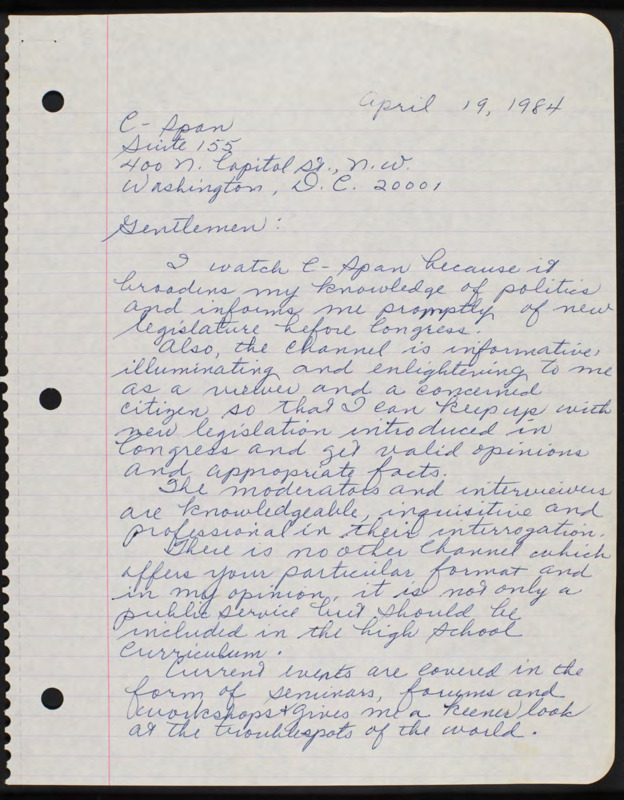 April 19, 1984
C-Span
Suite 155
400 N. Capitol St., N.W.
Washington, D.C. 20001
Gentlemen:
I watch C-Span because it
broadens my knowledge of politics
and informs me promptly of new
legislature before Congress.
Also, the channel is informative,
illuminating and enlightening to me
as a viewer and a concerned
citizen so that I can keep up with
new legislation introduced in
Congress and get valid opinions
and appropriate facts.
The moderators and interviewers
are knowledgeable, inquisitive and
professional in their interrogation.
There is no other channel which
offers your particular format and
in my opinion, it is not only a
public service but should be
included in the high school
curriculum.
Current events are covered in the
form of seminars, forums and
workshops & gives me a keener look
at the troublespots of the world.